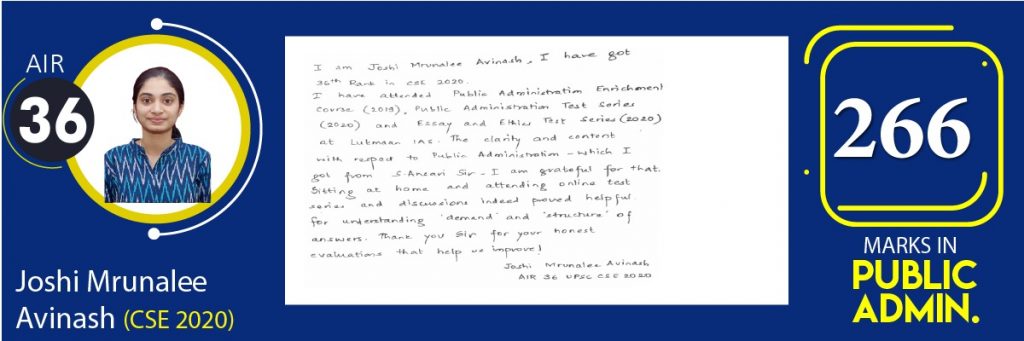 AIR
36
Joshi Mrunalee
Avinash (CSE 2020)
I am Joshi Mrunalee Avinash, I have got
36th Rank in CSE 2020.
I have attended Public Administration Enrichment
Course (2019), Public Administration Test Series
(2020) and Essay and Ethics Test Series (2020)
at Lukmaan IAS. The clarity and content
with respect to Public Administration - which I
got from S. Ansari Sir - I am grateful for that.
Sitting at home and attending online test
series and discussions indeed proved helpful
for understanding 'demand' and 'structure' of
answers. Thank you Sir for your honest
evaluations that help us improve!
Joshi Mrunalee Avinash
AIR 36 UPSC CSE 2020
266
MARKS IN
PUBLIC
ADMIN.